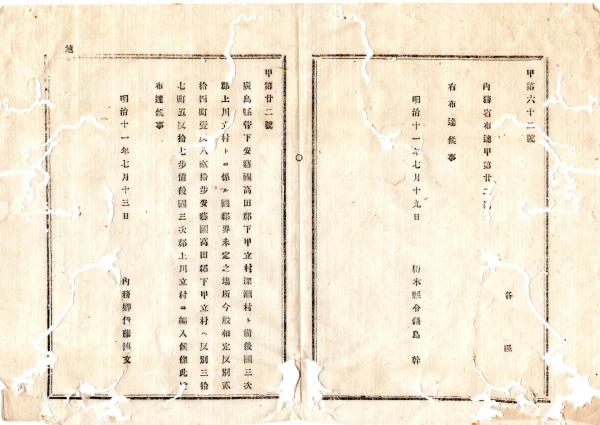 甲第六十二號
各區
內務省布達甲第廿二號
右布達候事
明治十一年七月十九日
栃木縣令鍋島幹
甲第廿二號
廣島縣管下安藝國高田郡下甲立村深瀨村ト備後國三次
郡上川立村トニ係ル國郡界未定之場所今般相定反別貳
拾四町壹反八畝拾步安藝國高田郡下甲立村ヘ反別三拾
七町五反拾七步備後國三次郡上川立村ニ編入候條此旨
布達候事
明治十一年七月十三日
內務卿伊藤博文